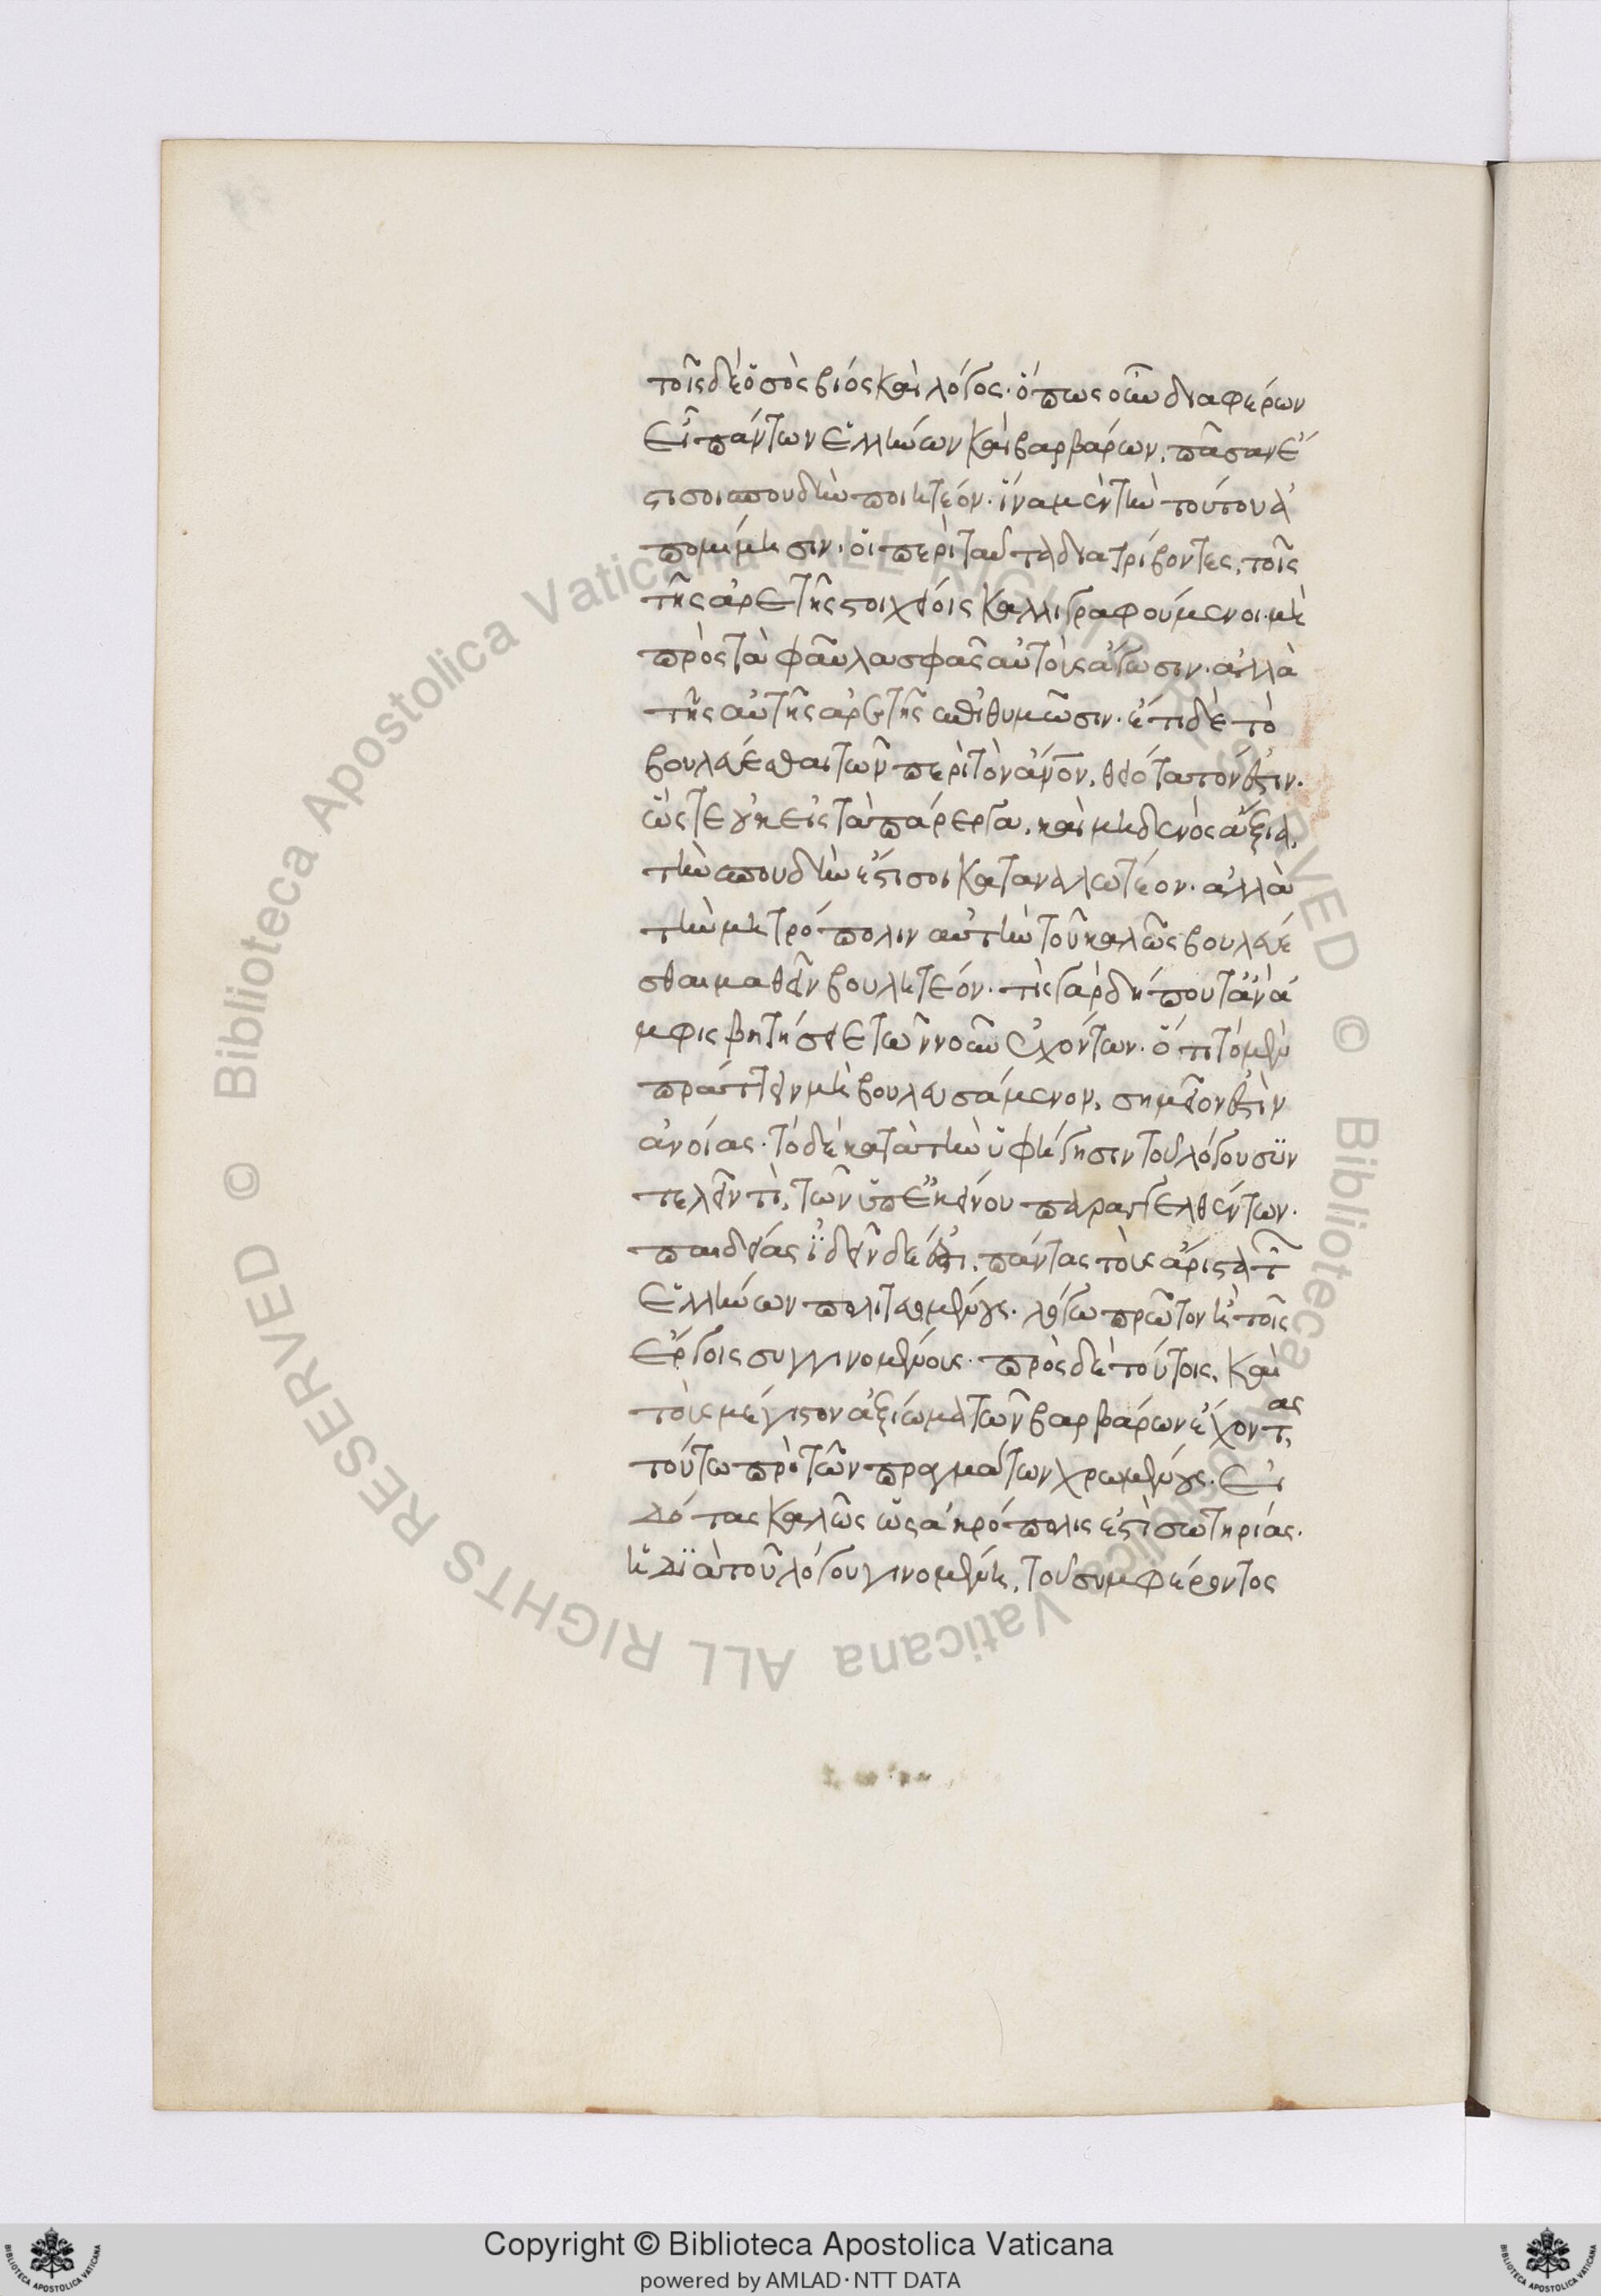 τοῖς δὲ ὁ σὸς βίος καὶ λόγος· ὅπως οὖν διαφέρων
εἶ πάντων ἑλλήνων καὶ βαρβάρων, πᾶσαν ἔ
στι σοι σπουδὴν ποιητέον· ἵνα μὲν τὴν τούτου ἀ
πομίμησιν· οἱ περὶ ταῦτα διατρίβοντες, τοῖς
τῆς ἀρετῆς στοιχείοις καλλιγραφούμενοι· μὴ
πρὸς τὰ φαῦλα σφᾶς αὐτοὺς ἄγωσιν· ἀλλὰ
τῆς αὐτῆς ἀρετῆς ἐπιθυμῶσιν· ἔτι δὲ τὸ
βουλεύεσθαι τῶν περὶ τὸν ἄνον, θειότατόν ἐστιν·
ὥστε οὐκ εἰς τὰ πάρεργα, καὶ μηδενὸς ἄξια,
τὴν σπουδὴν ἔστι σοι καταναλωτέον· ἀλλὰ
τὴν μητρόπολιν αὐτὴν τοῦ καλῶς βουλεύε
σθαι μαθεῖν βουλητέον· τίς γὰρ δήπου τἂν ἀ
μφισβητήσειε τῶν νοῦν ἐχόντων· ὅτι τὸ μὲν
πράττειν μὴ βουλευσάμενον, σημεῖον ἐστὶν
ἀνοίας· τὸ δὲ κατὰ τὴν ὑφήγησιν τοῦ λόγου συν
τελεῖν τι, τῶν ὑπ ἐκείνου παραγγελθέντων·
παιδείας· ἰδεῖν δὲ ἔστι, πάντας τοὺς ἄριστα τῶν
ἑλλήνων πολιτευομένους· λόγω πρῶτον ἢ τοῖς
ἔργοις συγγινομένους· πρὸς δὲ τούτοις, καὶ
τοὺς μέγιστον ἀξίωμα τῶν βαρβάρων ἔχοντας,
τούτω πρὸ τῶν πραγμάτων χρωμένους· εἰ
δότας καλῶς ὡς ἀκρόπολις ἐστὶ σωτηρίας·
ἡ διὰ τοῦ λόγου γινομένη, τοῦ συμφέροντος
Copyright © Biblioteca Apostolica Vaticana
powered by AMLAD·NTT DATA